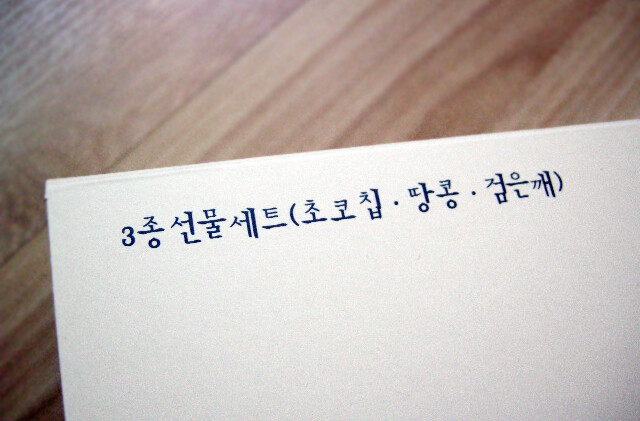 3종선물세트(초코칩·땅콩·검은깨)